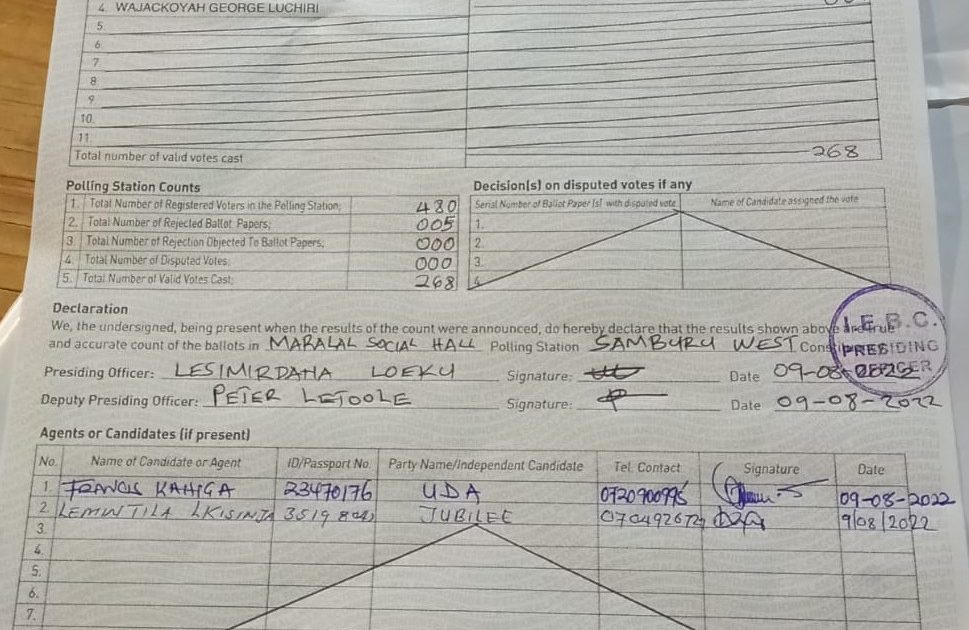 4. WAJACKOYAH GEORGE LUCHIRI
5.
6.
7.
8.
9.
10.
11.
Total number of valid votes cast 268
Polling Station Counts
1. Total Number of Registered Voters in the Polling Station; 480
2. Total Number of Rejected Ballot Papers; 005
3. Total Number of Rejection Objected To Ballot Papers; 000
4. Total Number of Disputed Votes; 000
5. Total Number of Valid Votes Cast; 268
Decision(s) on disputed votes if any
Serial Number of Ballot Paper (s) with disputed vote Name of Candidate assigned the vote
1.
2.
3.
4.
Declaration
We, the undersigned, being present when the results of the count were announced, do hereby declare that the results shown above are true
and accurate count of the ballots in MARALAL SOCIAL HALL Polling Station SAMBURU WEST
I.E.B.C.
PRESIDING
OFFICER
Presiding Officer: LESIMIRDAHA LOEKU Signature: Date 09-08-2022
Deputy Presiding Officer: PETER LETOOLE Signature: Date 09-08-2022
Agents or Candidates (if present)
No. Name of Candidate or Agent ID/Passport No. Party Name/Independent Candidate Tel. Contact Signature Date
1. FRANCIS KAHIGA 23470176 UDA 0720900995 09-08-2022
2. JUBILEE 9/08/2022
3.
4.
5.
6.
7.